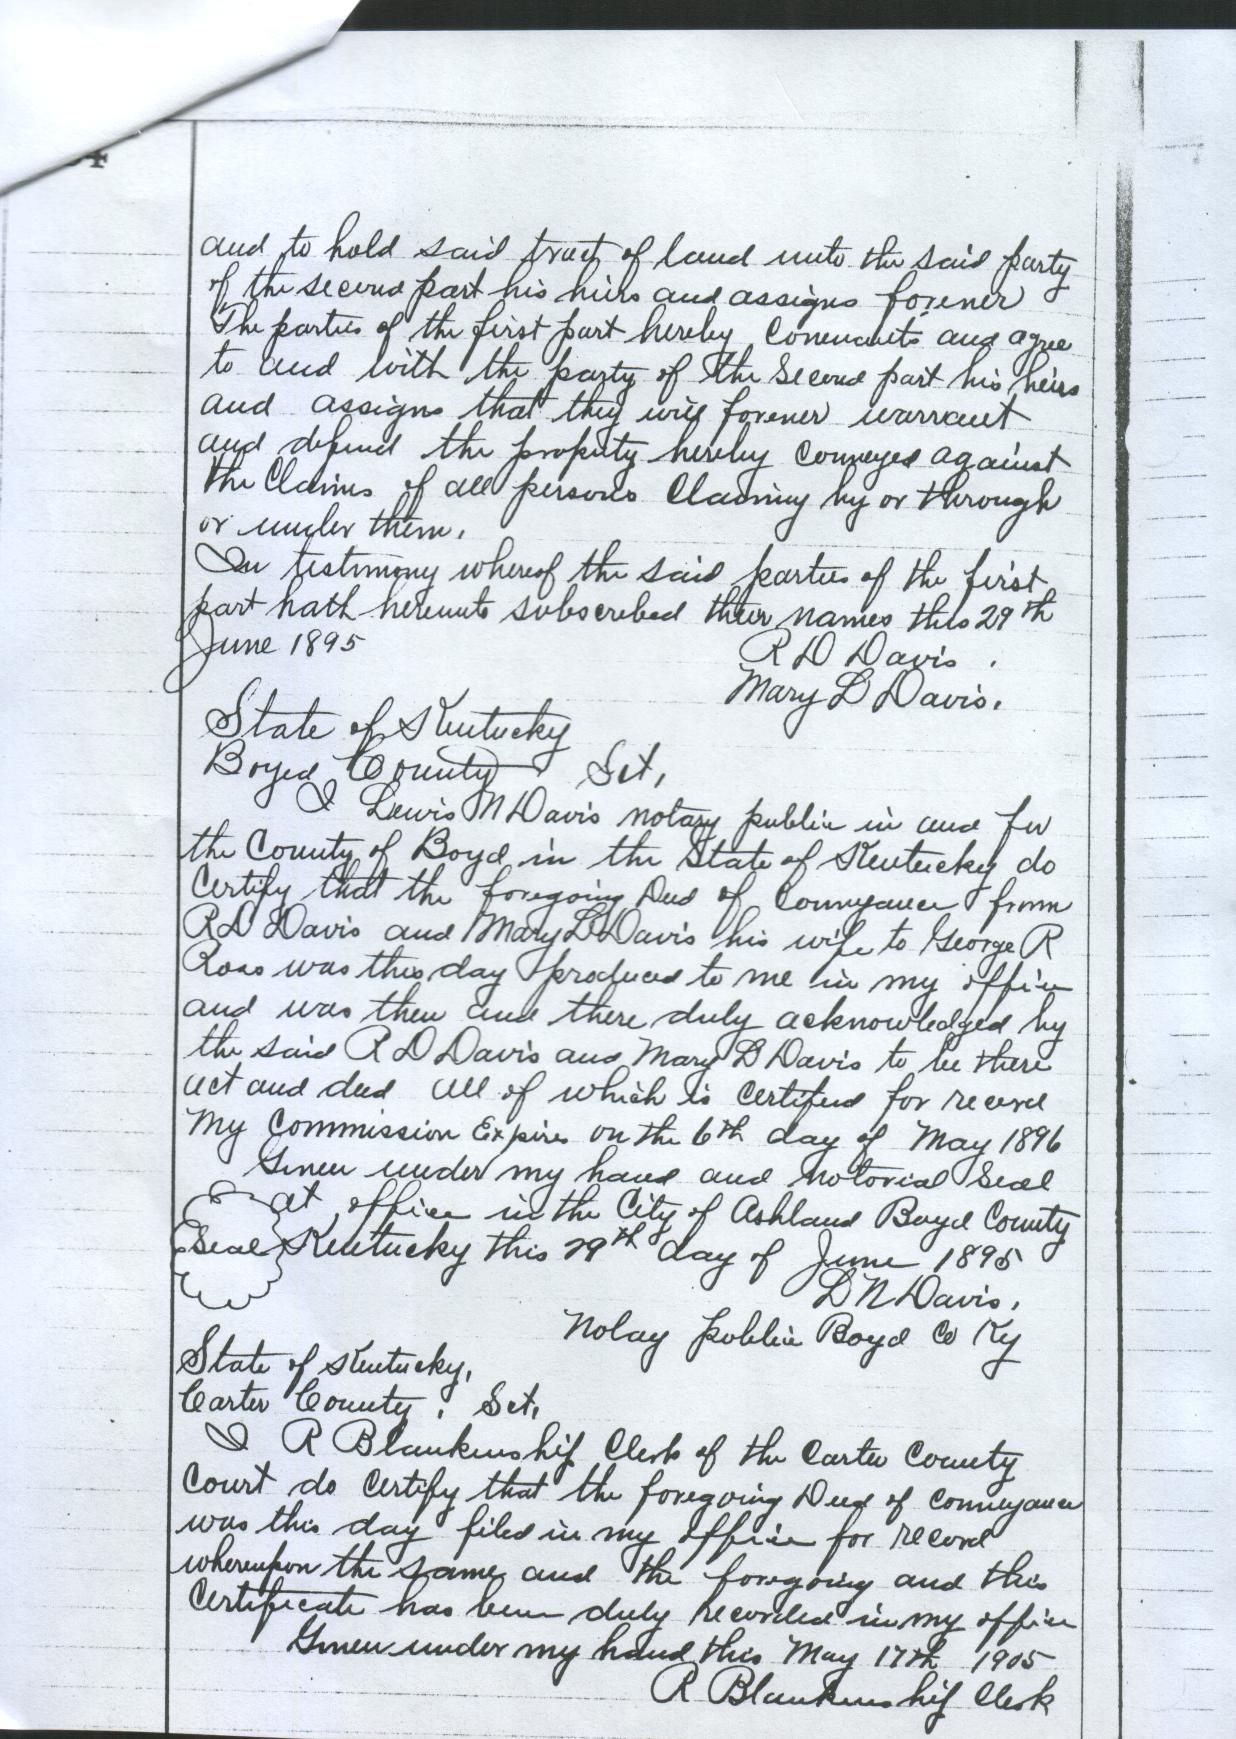 and to hold said tract of land unto the said party
of the second part his heirs and assigns forever
The parties of the first part hereby Covenants and agree
to and with the party of the Second part his heirs
and assigns that they will forever warrant
and defend the property hereby Conveyed against
the Claims of all persons Claiming by or through
or under them.
In testimony whereof the said parties of the first
part hath hereunto subscribed their names this 29th
June 1895
R D Davis.
Mary L Davis.
State of Kentucky
Boyd County Sct,
I Lewis N Davis notary public in and for
the County of Boyd in the State of Kentucky do
Certify that the foregoing Deed of Conveyance from
R D Davis and Mary L Davis his wife to George R
Ross was this day produced to me in my office
and was then and there duly acknowledged by
the said R D Davis and Mary L Davis to be there
act and deed all of which is Certified for record
My Commission Expires on the 6th day of May 1896
Given under my hand and notorial Seal
at office in the City of Ashland Boyd County
Seal Kentucky this 29th day of June 1895
L N Davis,
Notay public Boyd Co Ky
State of Kentucky,
Carter County, Sct,
I R Blankenship Clerk of the Carter County
Court do Certify that the foregoing Deed of Conveyance
was this day filed in my office for record
whereupon the same and the foregoing and this
Certificate has been duly recorded in my office
Given under my hand this May 17th 1905
R Blankenship Clerk